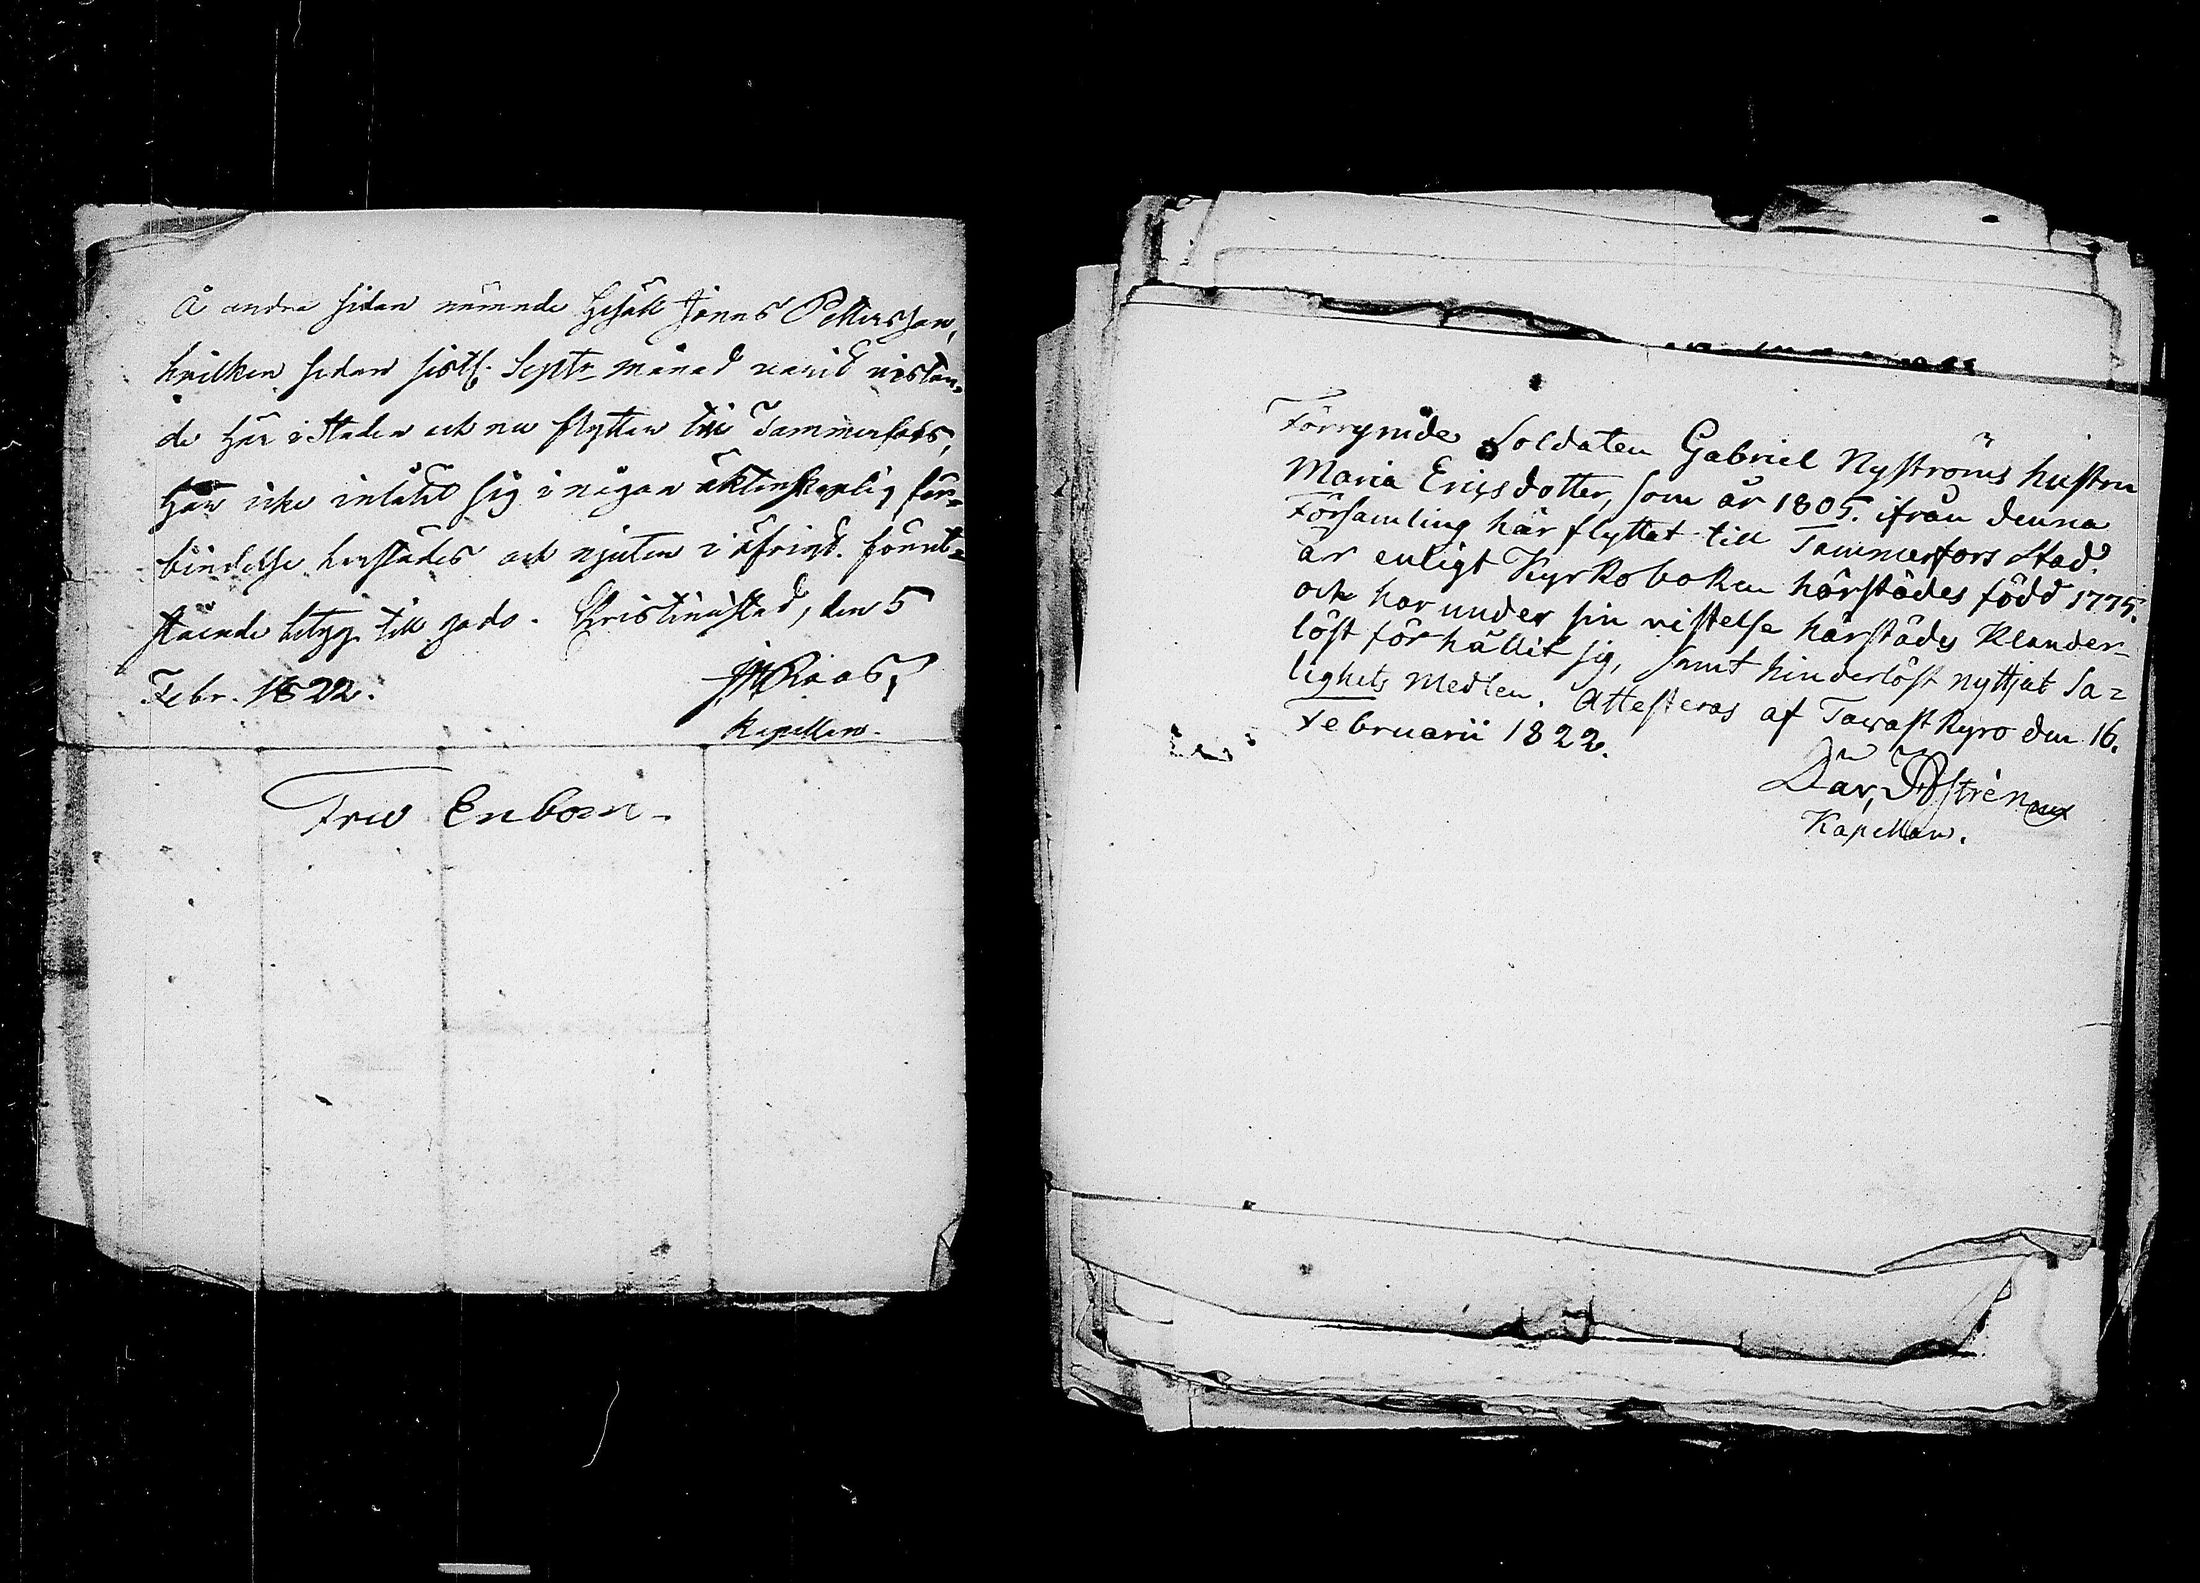 Å andra sidan nämnde Gesäll Jonas Pettersson,
hvilken sedan sistl. Septr månad varit vistan-
de här i Staden och nu flyttar till Tammerfors,
har icke inlåtit sig i någon äktenskaplig för-
bindelse härstädes och njuter i öfrigt förut-
stående betyg till godo. Christinestad, den 5
Febr. 1822.
Roos,
Kapellan.
Fru Enbom
Förrymde Soldaten Gabriel Nyströms hustru
Maria Ericsdotter, som år 1805. ifrån denna
Församling här flyttat till Tammerfors Stad.
är enligt Kyrkoboken härstädes född 1775.
och har under sin vistelse härstädes klander-
löst förhållit sig, samt hinderlöst nyttjat Sa-
lighets Medlen. Attesteras af Tavastkyro den 16.
Februarii 1822.
Dav,
Kapellan.